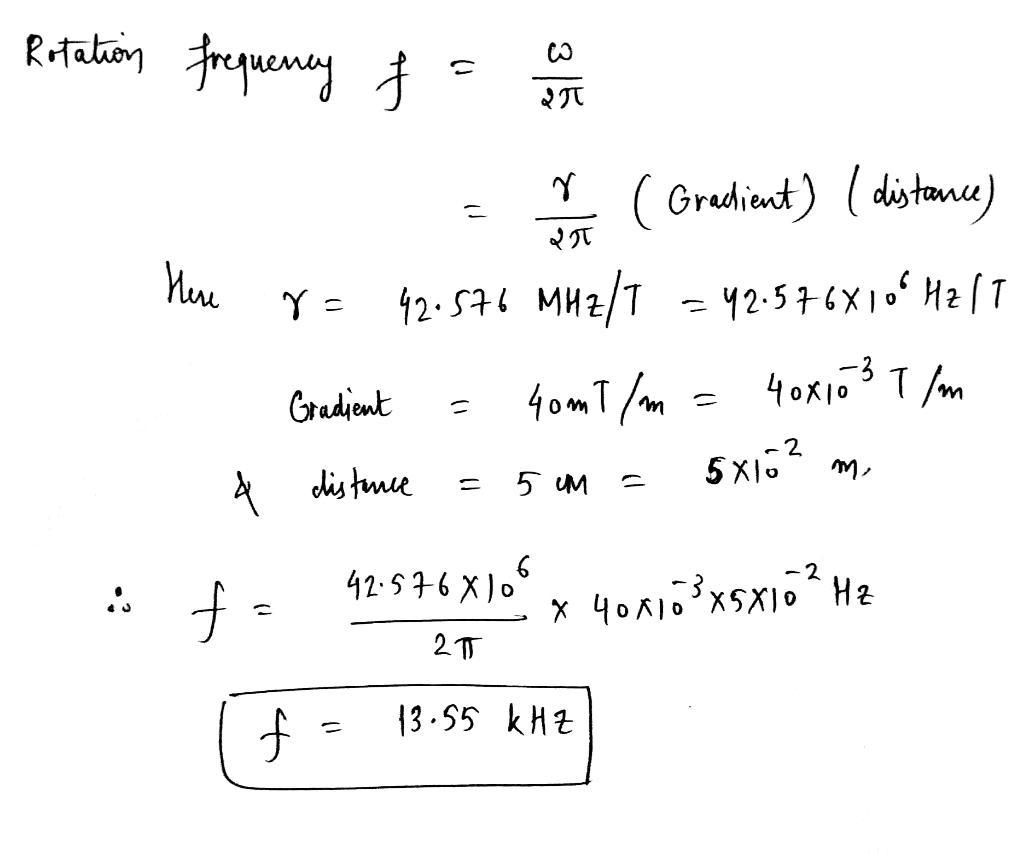 Rotation frequency f = ω/2π
= γ/2π (Gradient) (distance)
Here γ = 42.576 MHz/T = 42.576×10⁶ Hz/T
Gradient = 40mT/m = 40×10⁻³ T/m
& distance = 5 cm = 5×10⁻² m.
∴ f = 42.576×10⁶/2π × 40×10⁻³×5×10⁻² Hz
f = 13.55 kHz